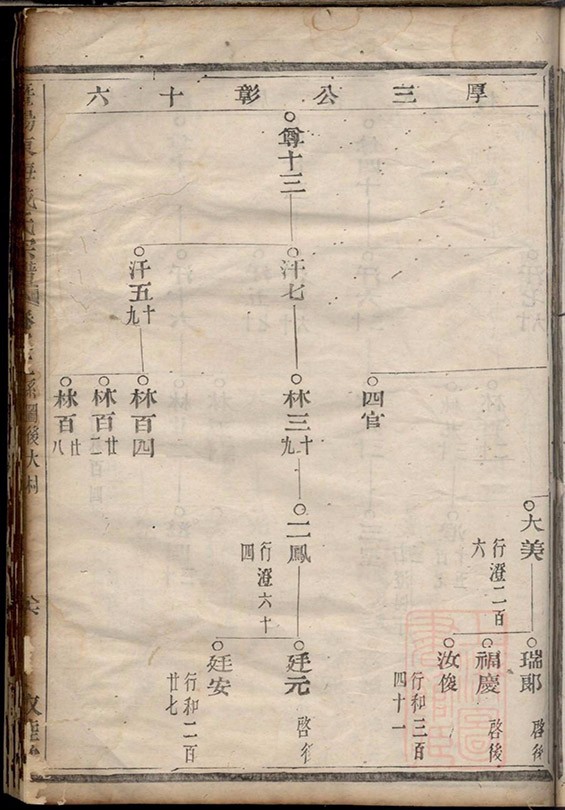 厚三公彰十六
大美
行澄二百六
瑞郎
啓後
福慶
啓後
汝俊
行和三百四十一
四官
尊十三
汗七
林三十九
二鳳
行澄六十四
廷元
啓後
廷安
行和二百廿七
汗五十九
林百四
林百廿二
林百廿八